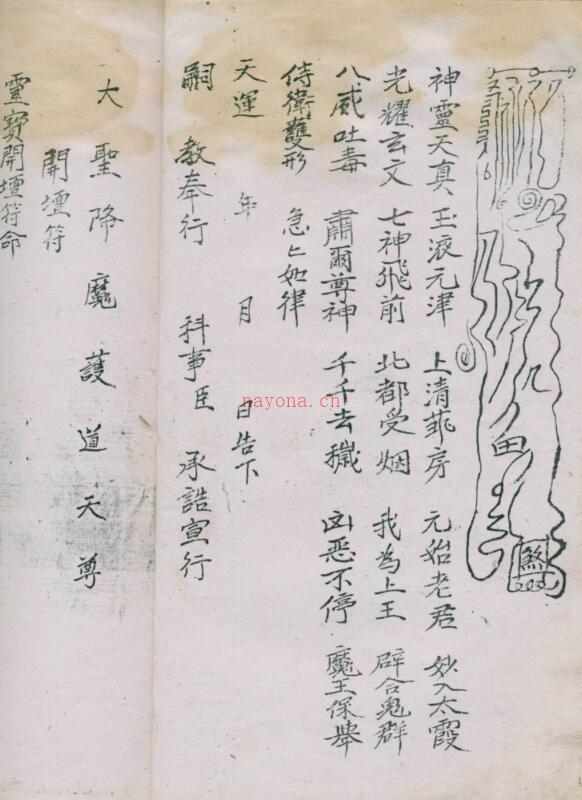 煞
神靈天真 玉液元津 上清菲房 元始老君 妙入太霞
光耀玄文 七神飛前 北都受烟 我為上王 辟合鬼群
八威吐毒 肅爾尊神 千千去穢 凶恶不停 魔王保举
侍衛護形 急亡如律
天運 年 月 日告下
嗣教奉行 科事臣 承誥宣行
大聖降魔護道天尊
開壇符
靈寶開壇符命
nayona.cn